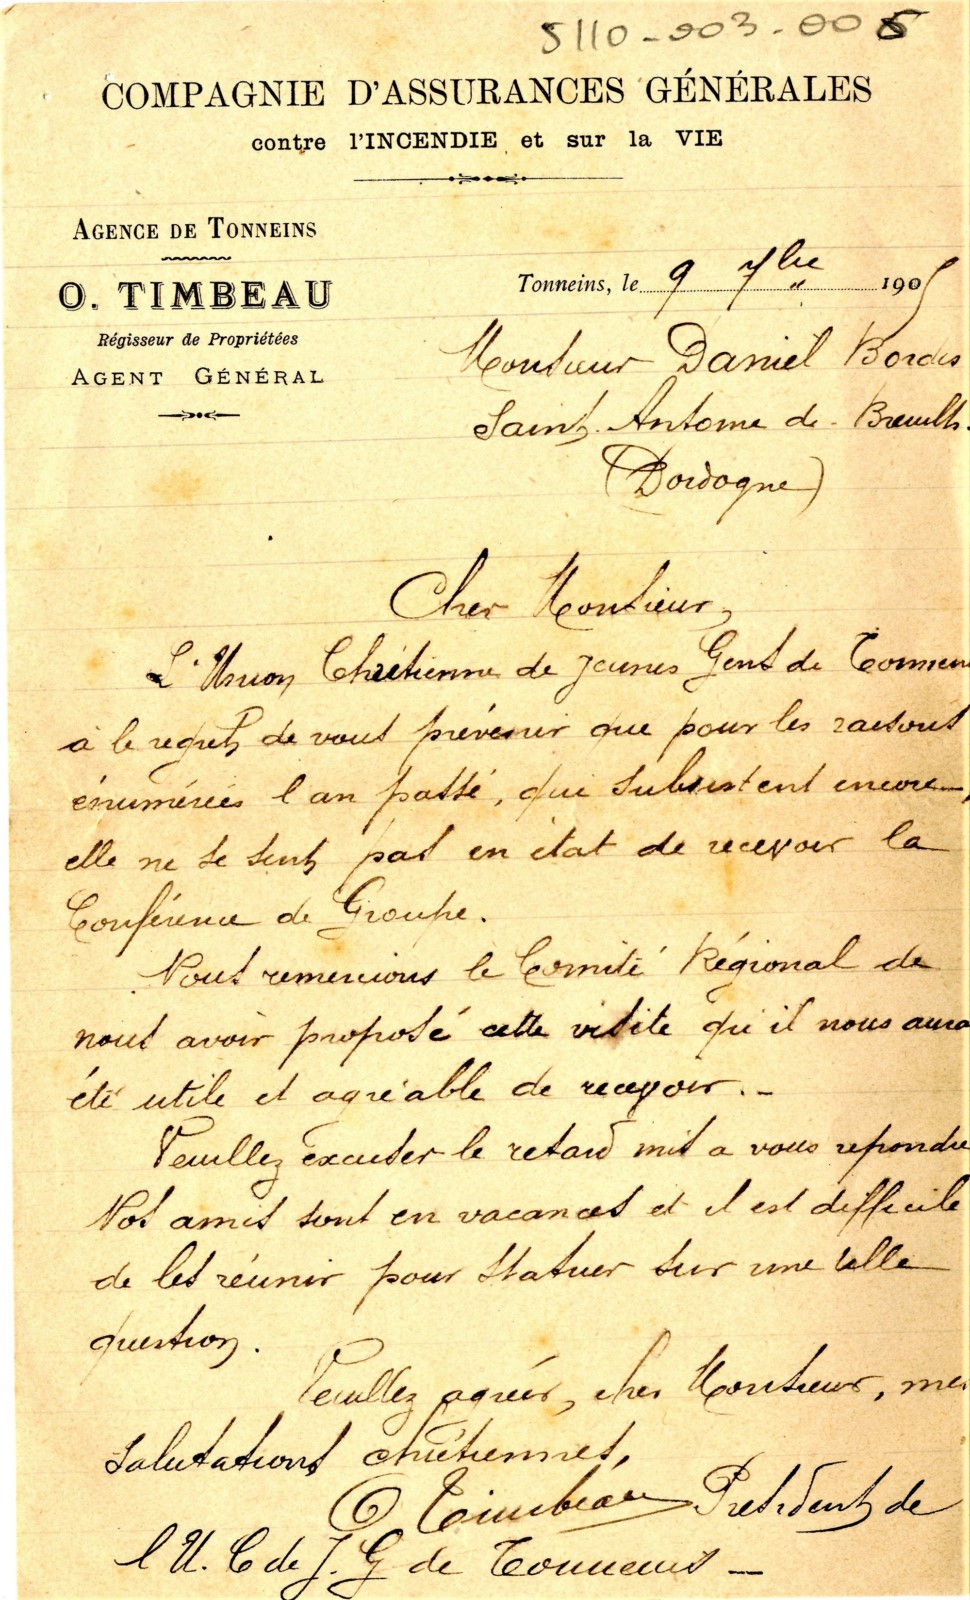 5110-003-005
COMPAGNIE D'ASSURANCES GÉNÉRALES
contre l'INCENDIE et sur la VIE
AGENCE DE TONNEINS
O. TIMBEAU
Régisseur de Propriétées
AGENT GÉNÉRAL
Tonneins, le 9 7bre 1905
Monsieur Daniel Bordes
Saint-Antoine de-Breuilh.
(Dordogne)
Cher Monsieur,
L'Union Chrétienne de jeunes Gens de Tonneins
à le regret de vous prévenir que pour les raisons
énumérées l'an passé, qui subsistent encore,
elle ne se sent pas en état de recevoir la
Conférence de Groupe.
Nous remercions le Comité Régional de
nous avoir proposé cette visite qu'il nous aura
été utile et agréable de recevoir.-
Veuillez excuser le retard mis a vous repondre
Nos amis sont en vacances et il est difficile
de les réunir pour statuer sur une telle
question.
Veuillez agréer, cher Monsieur, mes
salutations chrétiennes,
O Timbeau Président de
l'U. C de J. G de Tonneins -